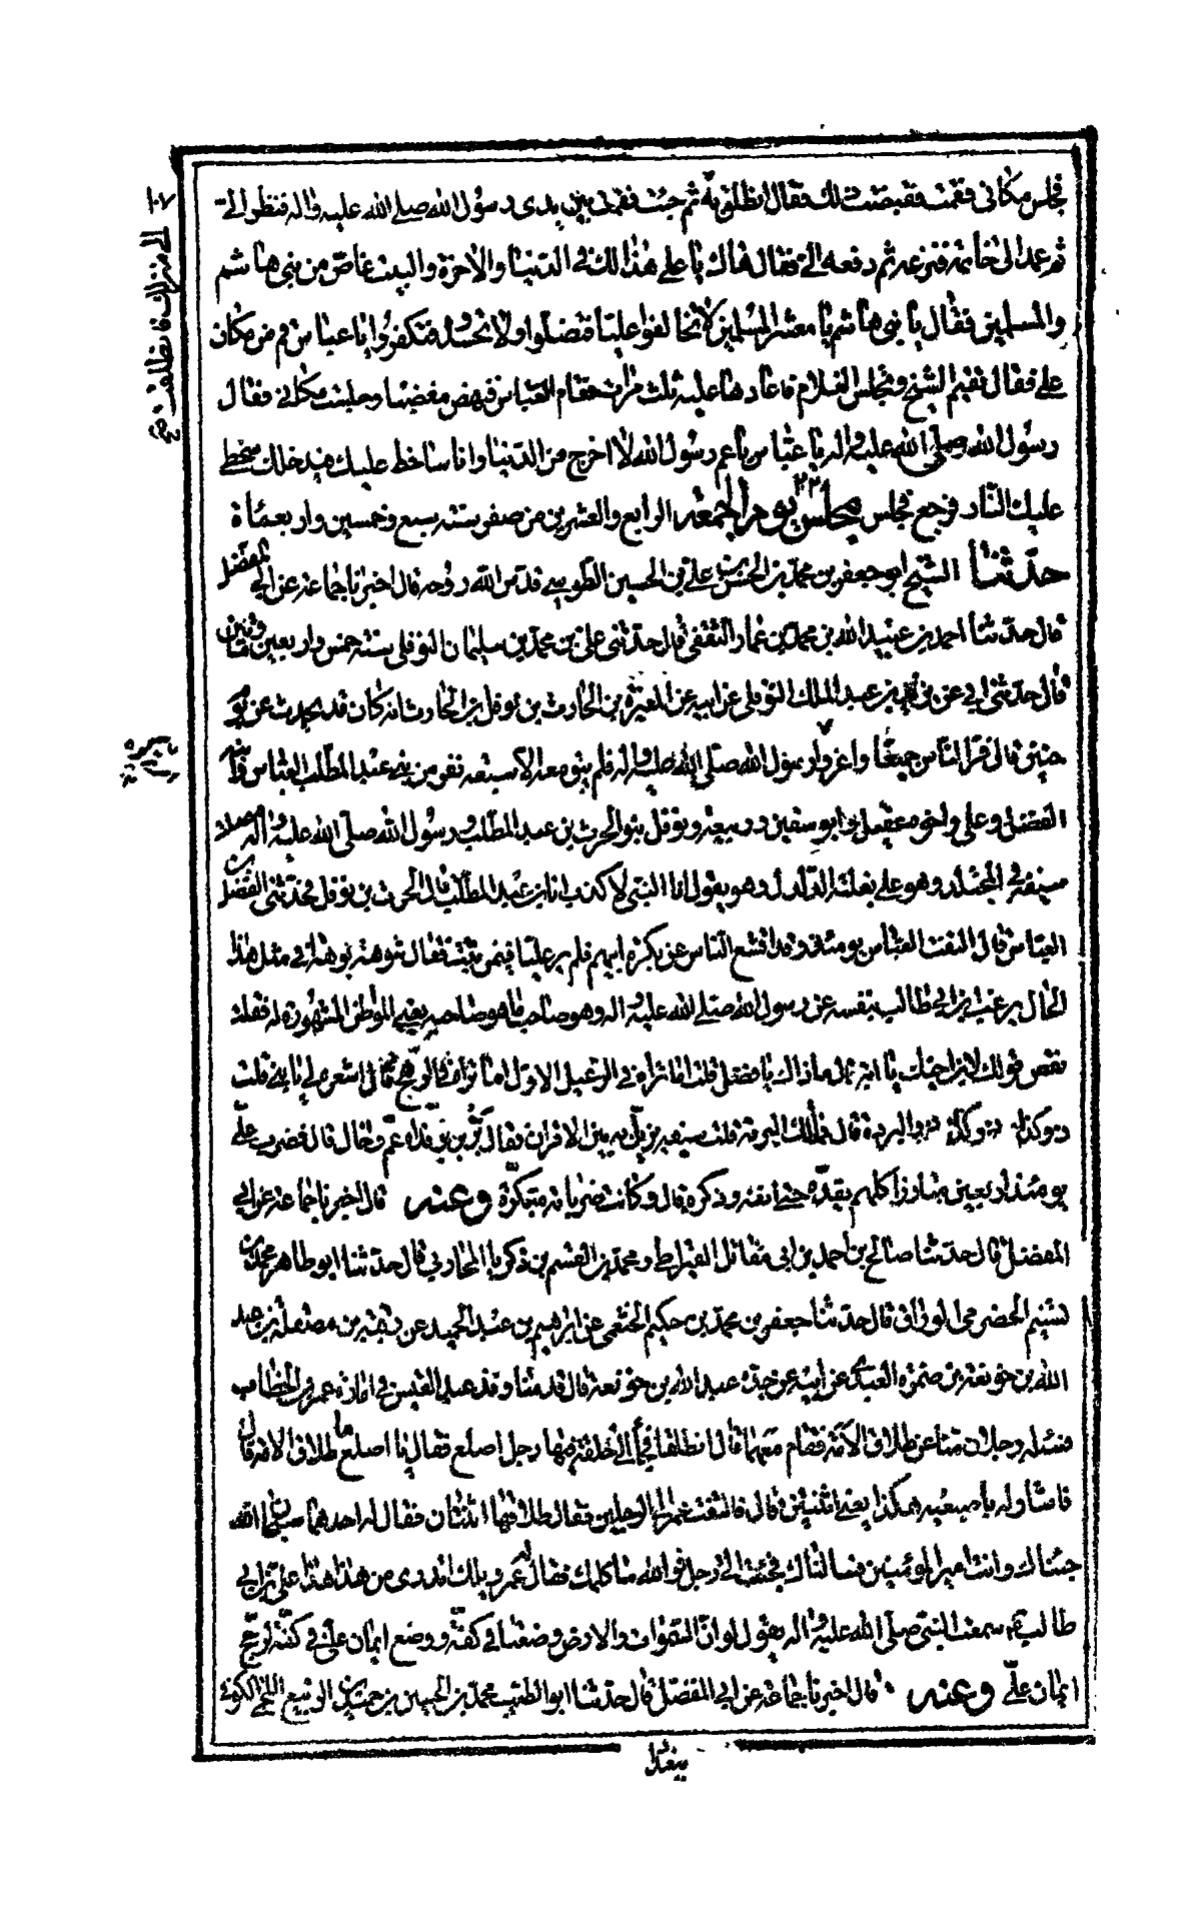 فجلس مكانى فقمت فقبضت ذلك فقال انطلق به ثم جئت فقمت بين يدى رسول الله صلى الله عليه واله فنظر الى
ثم عمد الى خاتمه فنزعه ثم دفعه الى فقال هاك يا على هذا لك فى الدنيا والاخرة والبيت غاص من بنى هاشم
والمسلمين فقال يا بنى هاشم يا معشر المسلمين لا تخالفوا عليا فتضلوا ولا تحسدوه فتكفروا يا عباس قم من مكان
على فقال تقيم الشيخ وتجلس الغلام فاعادها عليه ثلث مرات فقام العباس فنهض مغضبا وجلست مكانى فقال
رسول الله صلى الله عليه واله يا عباس يا عم رسول الله لا اخرج من الدنيا وانا ساخط عليك فيدخلك سخطى
عليك النار فرجع فجلس مجلس يوم الجمعة الرابع والعشرين من صفر سنة سبع وخمسين واربعمأة
حدثنا الشيخ ابو جعفر بن محمد بن الحسن بن على بن الحسين الطوسى قدس الله روحه قال اخبرنا جماعة عن ابى المفضل
قال حدثنا احمد بن عبيد الله بن محمد بن عمار الثقفى قال حدثنى على بن محمد بن سليمان النوفلى سنة خمس واربعين ومأتين
قال حدثنى ابى عن بن يزيد بن عبد الملك النوفلى عن ابيه عن المغيرة بن الحارث بن نوفل بن الحارث انه كان قد يحدث عن يوم
حنين قال فر الناس جميعا واعروا رسول الله صلى الله عليه واله فلم يبق معه الا سبعة نفر من بنى عبد المطلب العباس وابنه
الفضل وعلى واخوه عقيل وابو سفين وربيعة ونوفل بنو الحرث بن عبد المطلب ورسول الله صلى الله عليه واله مصلت
سيفه فى المجتلد وهو على بغلته الدلدل وهو يقول انا النبى لا كذب انا ابن عبد المطلب قال الحرث بن نوفل فحدثنى الفضل بن
العباس قال التفت العباس يومئذ وقد اقشع الناس عن بكرة ابيهم فلم ير عليا فيمن ثبت فقال شوهة بوهة افى مثل هذا
الحال يرغب بن ابى طالب بنفسه عن رسول الله صلى الله عليه واله وهو صاحب ما هو صاحبه يعنى المواطن المشهورة له فقلت
نقص قولك لابن اخيك يا ابه قال ماذاك يا فضل قلت اما تراه فى الرعيل الاول اما تراه فى الرهج قال اشعره لى يا بنى قلت
ذو كذا ذو كذا ذو البردة قال فما تلك البرقة قلت سيفه يزيل به بين الاقران فقال بر بن بر فداه عم وخال قال فضرب على
يومئذ اربعين مبارزا كلهم يقده حتى انفه وذكره قال وكانت ضرباته مبتكرة وعنه قال اخبرنا جماعة عن ابى
المفضل قال حدثنا صالح بن احمد بن ابى مقاتل القيراطى ومحمد بن القسم بن زكريا المحاربى قال حدثنا ابو طاهر محمد بن
تسنيم الحضرمى الوراق قال حدثنا جعفر بن محمد بن حكيم الخثعمى عن ابراهيم بن عبد الحميد عن رقبة بن مصقلة بن عبد
الله بن خونعة بن ضمرة العبدى عن ابيه عن جده عبد الله بن خونعة قال قدمنا وفد عبد القيس فى امارة عمر بن الخطاب
فسئله رجلان منا عن طلاق الامة فقام معهما قال انطلقا فجاء الى حلقة فيها رجل اصلع فقال يا اصلع ما طلاق الامة قال
فاشار له باصبعيه هكذا يعنى اثنتين قال فالتفت عمر الى الرجلين فقال طلاقها اثنتان فقال له احدهما سبحان الله
جئناك وانت امير المؤمنين فسالناك فجئت الى رجل فوالله ما كلمك فقال له عمر ويلك اتدرى من هذا هذا على بن ابى
طالب سمعت النبى صلى الله عليه واله يقول لو ان السموات والارض وضعتا فى كفة ووضع ايمان على فى كفة لرجح
ايمان على وعنه قال اخبرنا جماعة عن ابى المفضل قال حدثنا ابو الطيب محمد بن الحسين بن حميد بن الربيع اللخمى الكوفى
ببغداد
١٠٧
الى منزلك فانطلقت